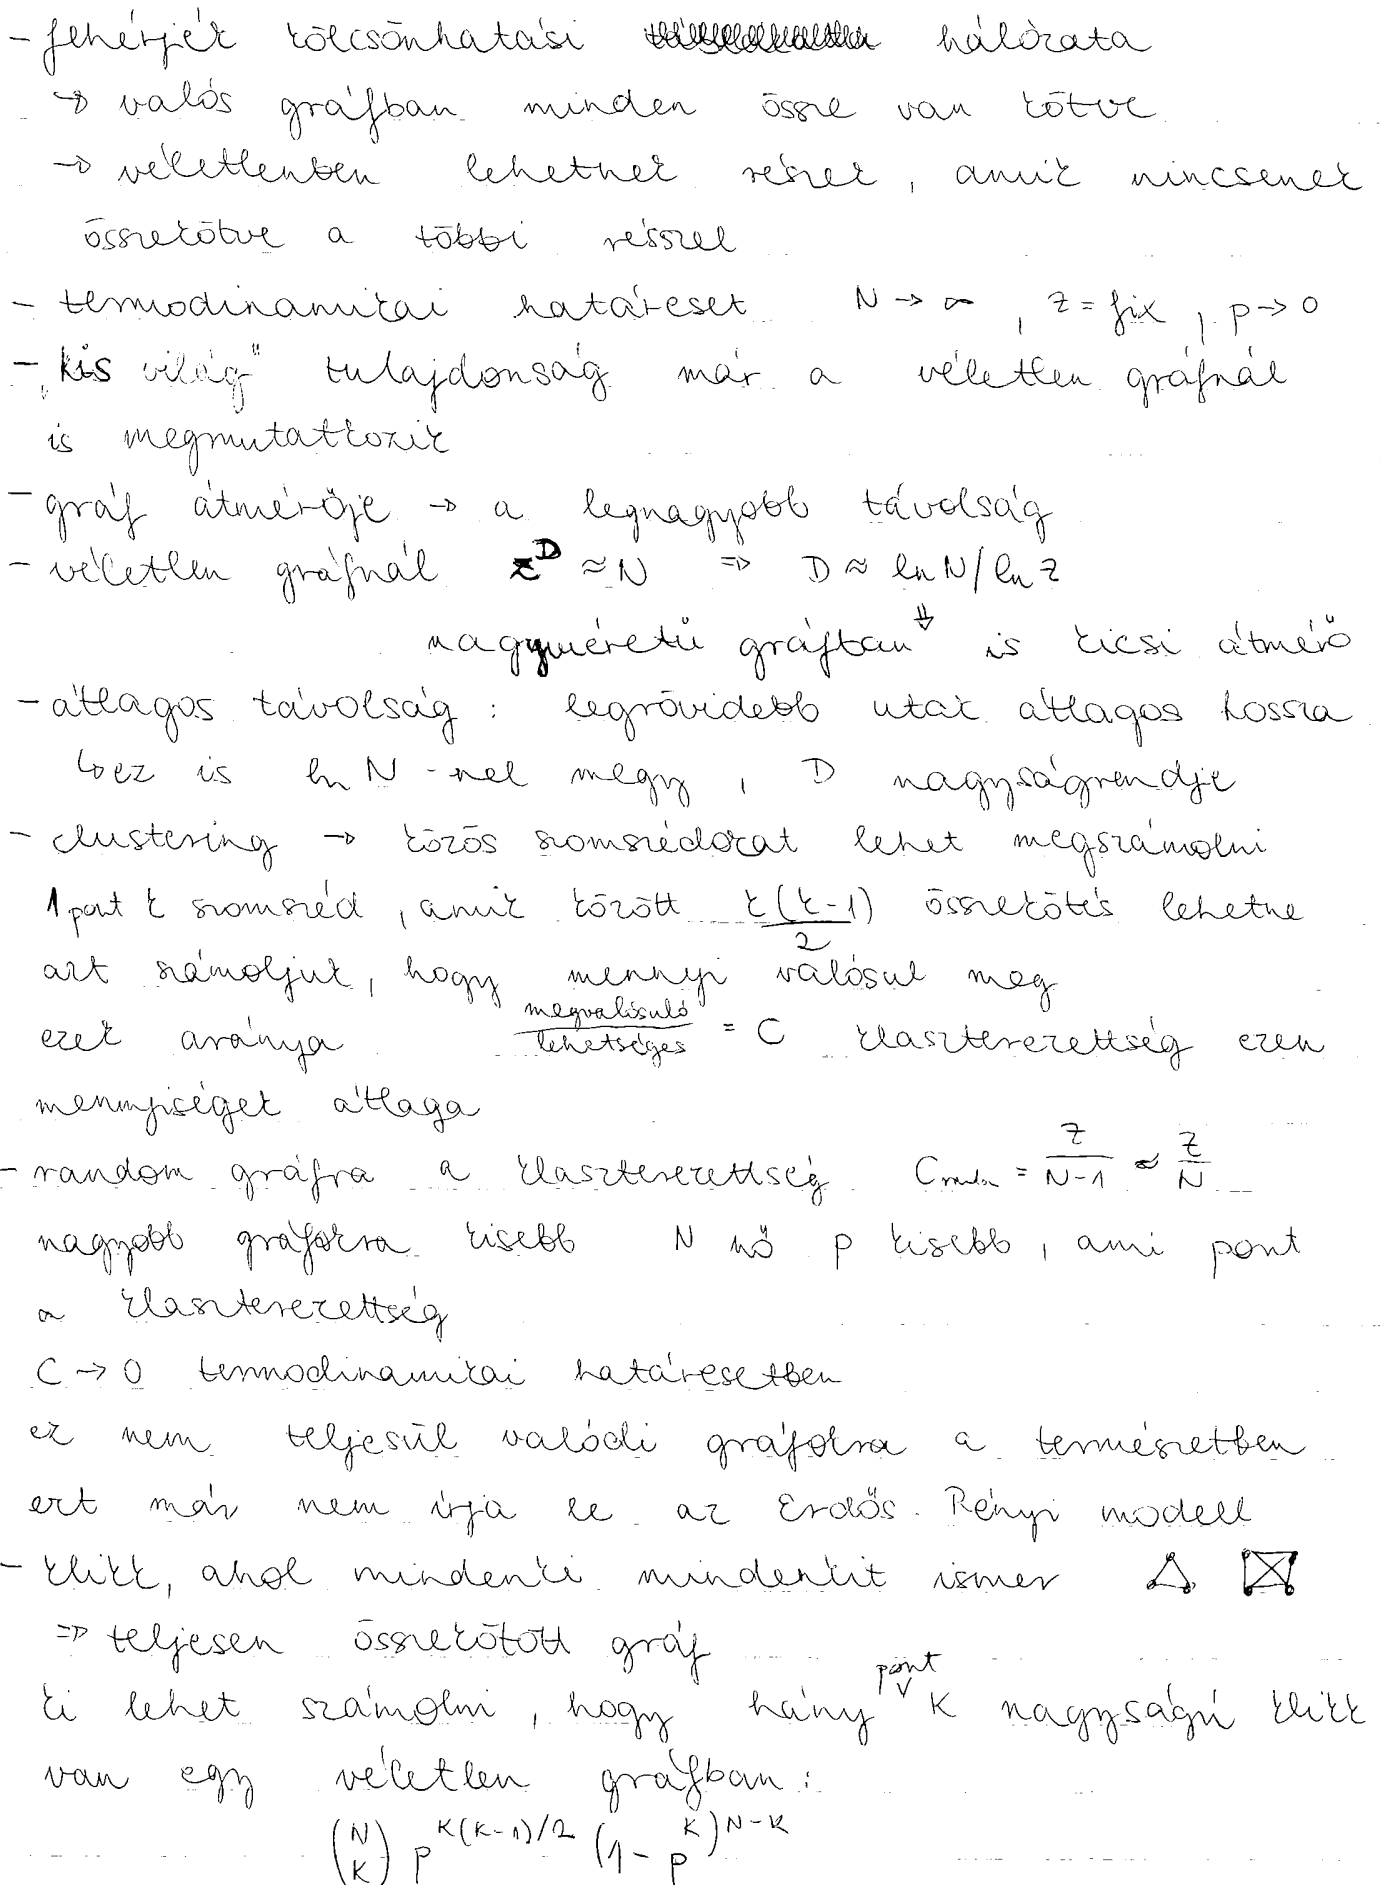 - fehérjék kölcsönhatási hálózata
→ valós gráfban minden össze van kötve
→ véletlenben lehetnek részek, amik nincsenek
összekötve a többi résszel
- termodinamikai határeset N → ∞, z = fix, p → 0
- "kis világ" tulajdonság már a véletlen gráfnál
is megmutatkozik
- gráf átmérője → a legnagyobb távolság
- véletlen gráfnál z^D ≈ N ⇒ D ≈ ln N / ln z
⇓
nagyméretű gráfban is kicsi átmérő
- átlagos távolság : legrövidebb utak átlagos hossza
↳ ez is ln N -nel megy, D nagyságrendje
- clustering → közös szomszédokat lehet megszámolni
1 pont k szomszéd, amik között k(k-1)/2 összekötés lehetne
azt számoljuk, hogy mennyi valósul meg
ezek aránya megvalósuló/lehetséges = C klaszterezettség ezen
mennyiségek átlaga
- random gráfra a klaszterezettség C = z/(N-1) ≈ z/N
nagyobb gráfokra kisebb N nő p kisebb, ami pont
a klaszterezettség
C → 0 termodinamikai határesetben
ez nem teljesül valódi gráfokra a természetben
ezt már nem írja le az Erdős Rényi modell
- klikk, ahol mindenki mindenkit ismer
⇒ teljesen összekötött gráf
ki lehet számolni, hogy hány pont K nagyságú klikk
van egy véletlen gráfban:
(N K) p^(K(K-1)/2) (1-p^K)^(N-K)